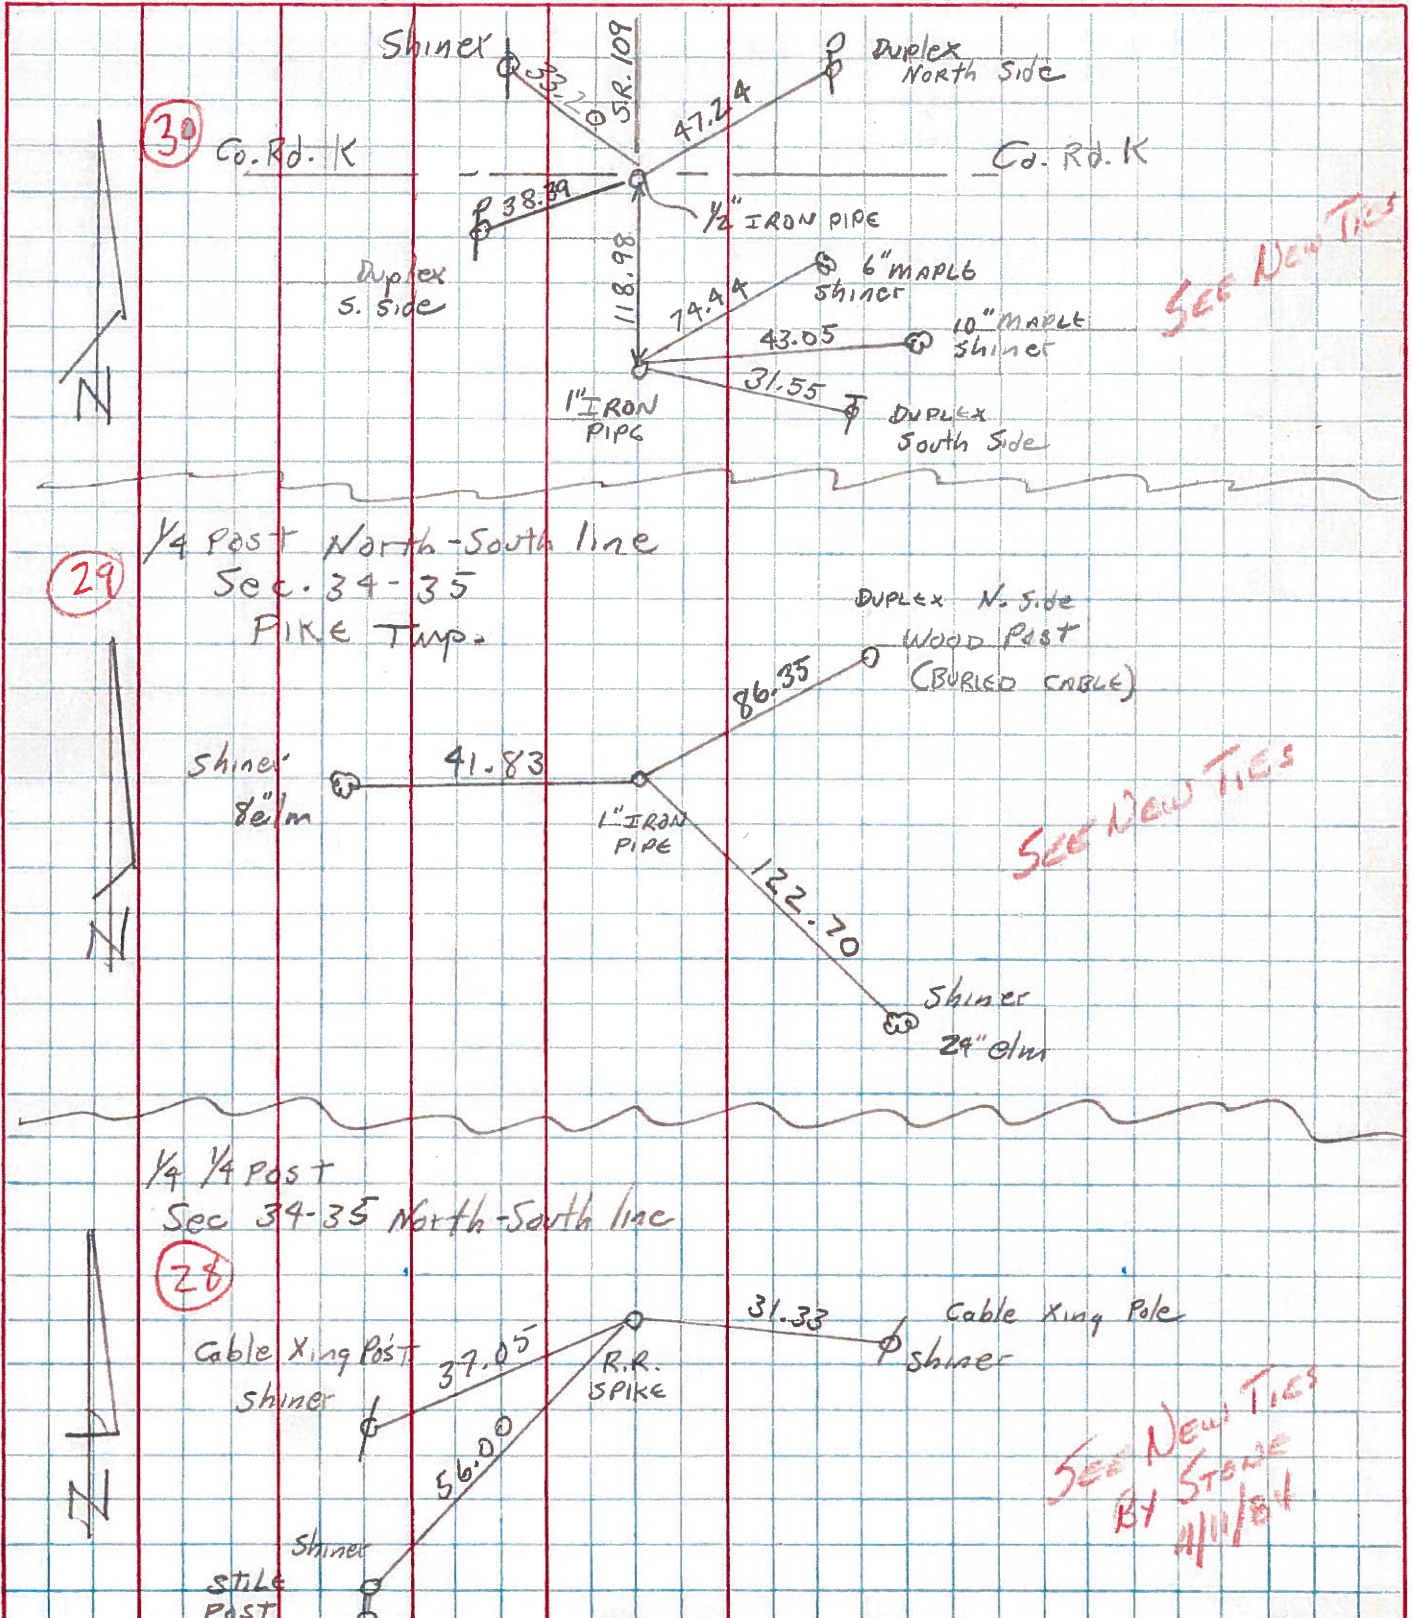 Shiner
33.20
S.R. 109
47.24
Duplex
North Side
30
Co. Rd. K
Co. Rd. K
38.39
1/2" IRON PIPE
Duplex
S. Side
118.98
74.44
6" MAPLE
Shiner
43.05
10" MAPLE
Shiner
31.55
1" IRON
PIPE
DUPLEX
South Side
N
SEE NEW TIES
1/4 Post North-South line
29
Sec. 34-35
PIKE Twp.
DUPLEX N. Side
WOOD POST
(BURIED CABLE)
86.35
Shiner
8" elm
41.83
1" IRON
PIPE
122.70
Shiner
24" elm
N
SEE NEW TIES
1/4 1/4 Post
Sec 34-35 North-South line
28
Cable Xing Post
Shiner
37.05
R.R.
SPIKE
31.33
Cable Xing Pole
Shiner
56.00
N
Shiner
STILE
POST
SEE NEW TIES
BY STONE
11/11/84